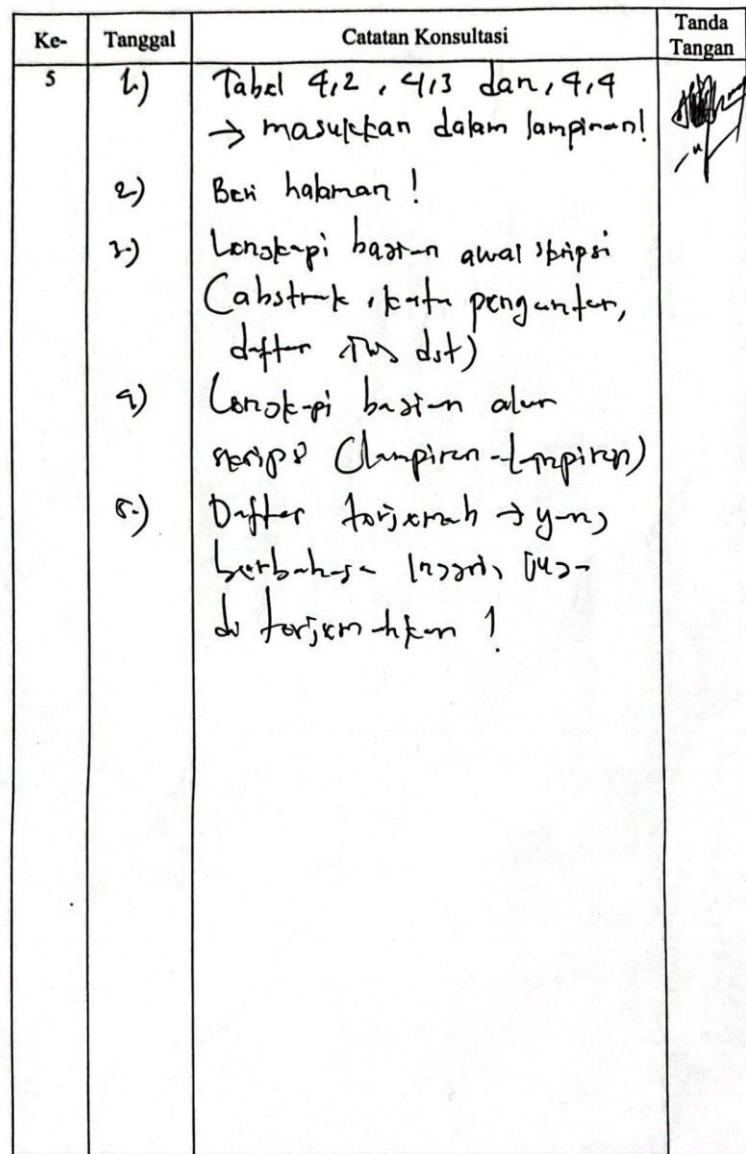 Ke- Tanggal Catatan Konsultasi Tanda Tangan
5 1.) Tabel 4,2 , 4,3 dan, 4,4
→ masukkan dalam lampiran!
2) Beri halaman !
3-) Lengkapi bagian awal skripsi
(abstrak, kata pengantar,
daftar isi dst)
4) Lengkapi bagian akhir
skripsi (lampiran-lampiran)
5-) Daftar terjemah → yang
berbahasa Inggris juga
di terjemahkan !